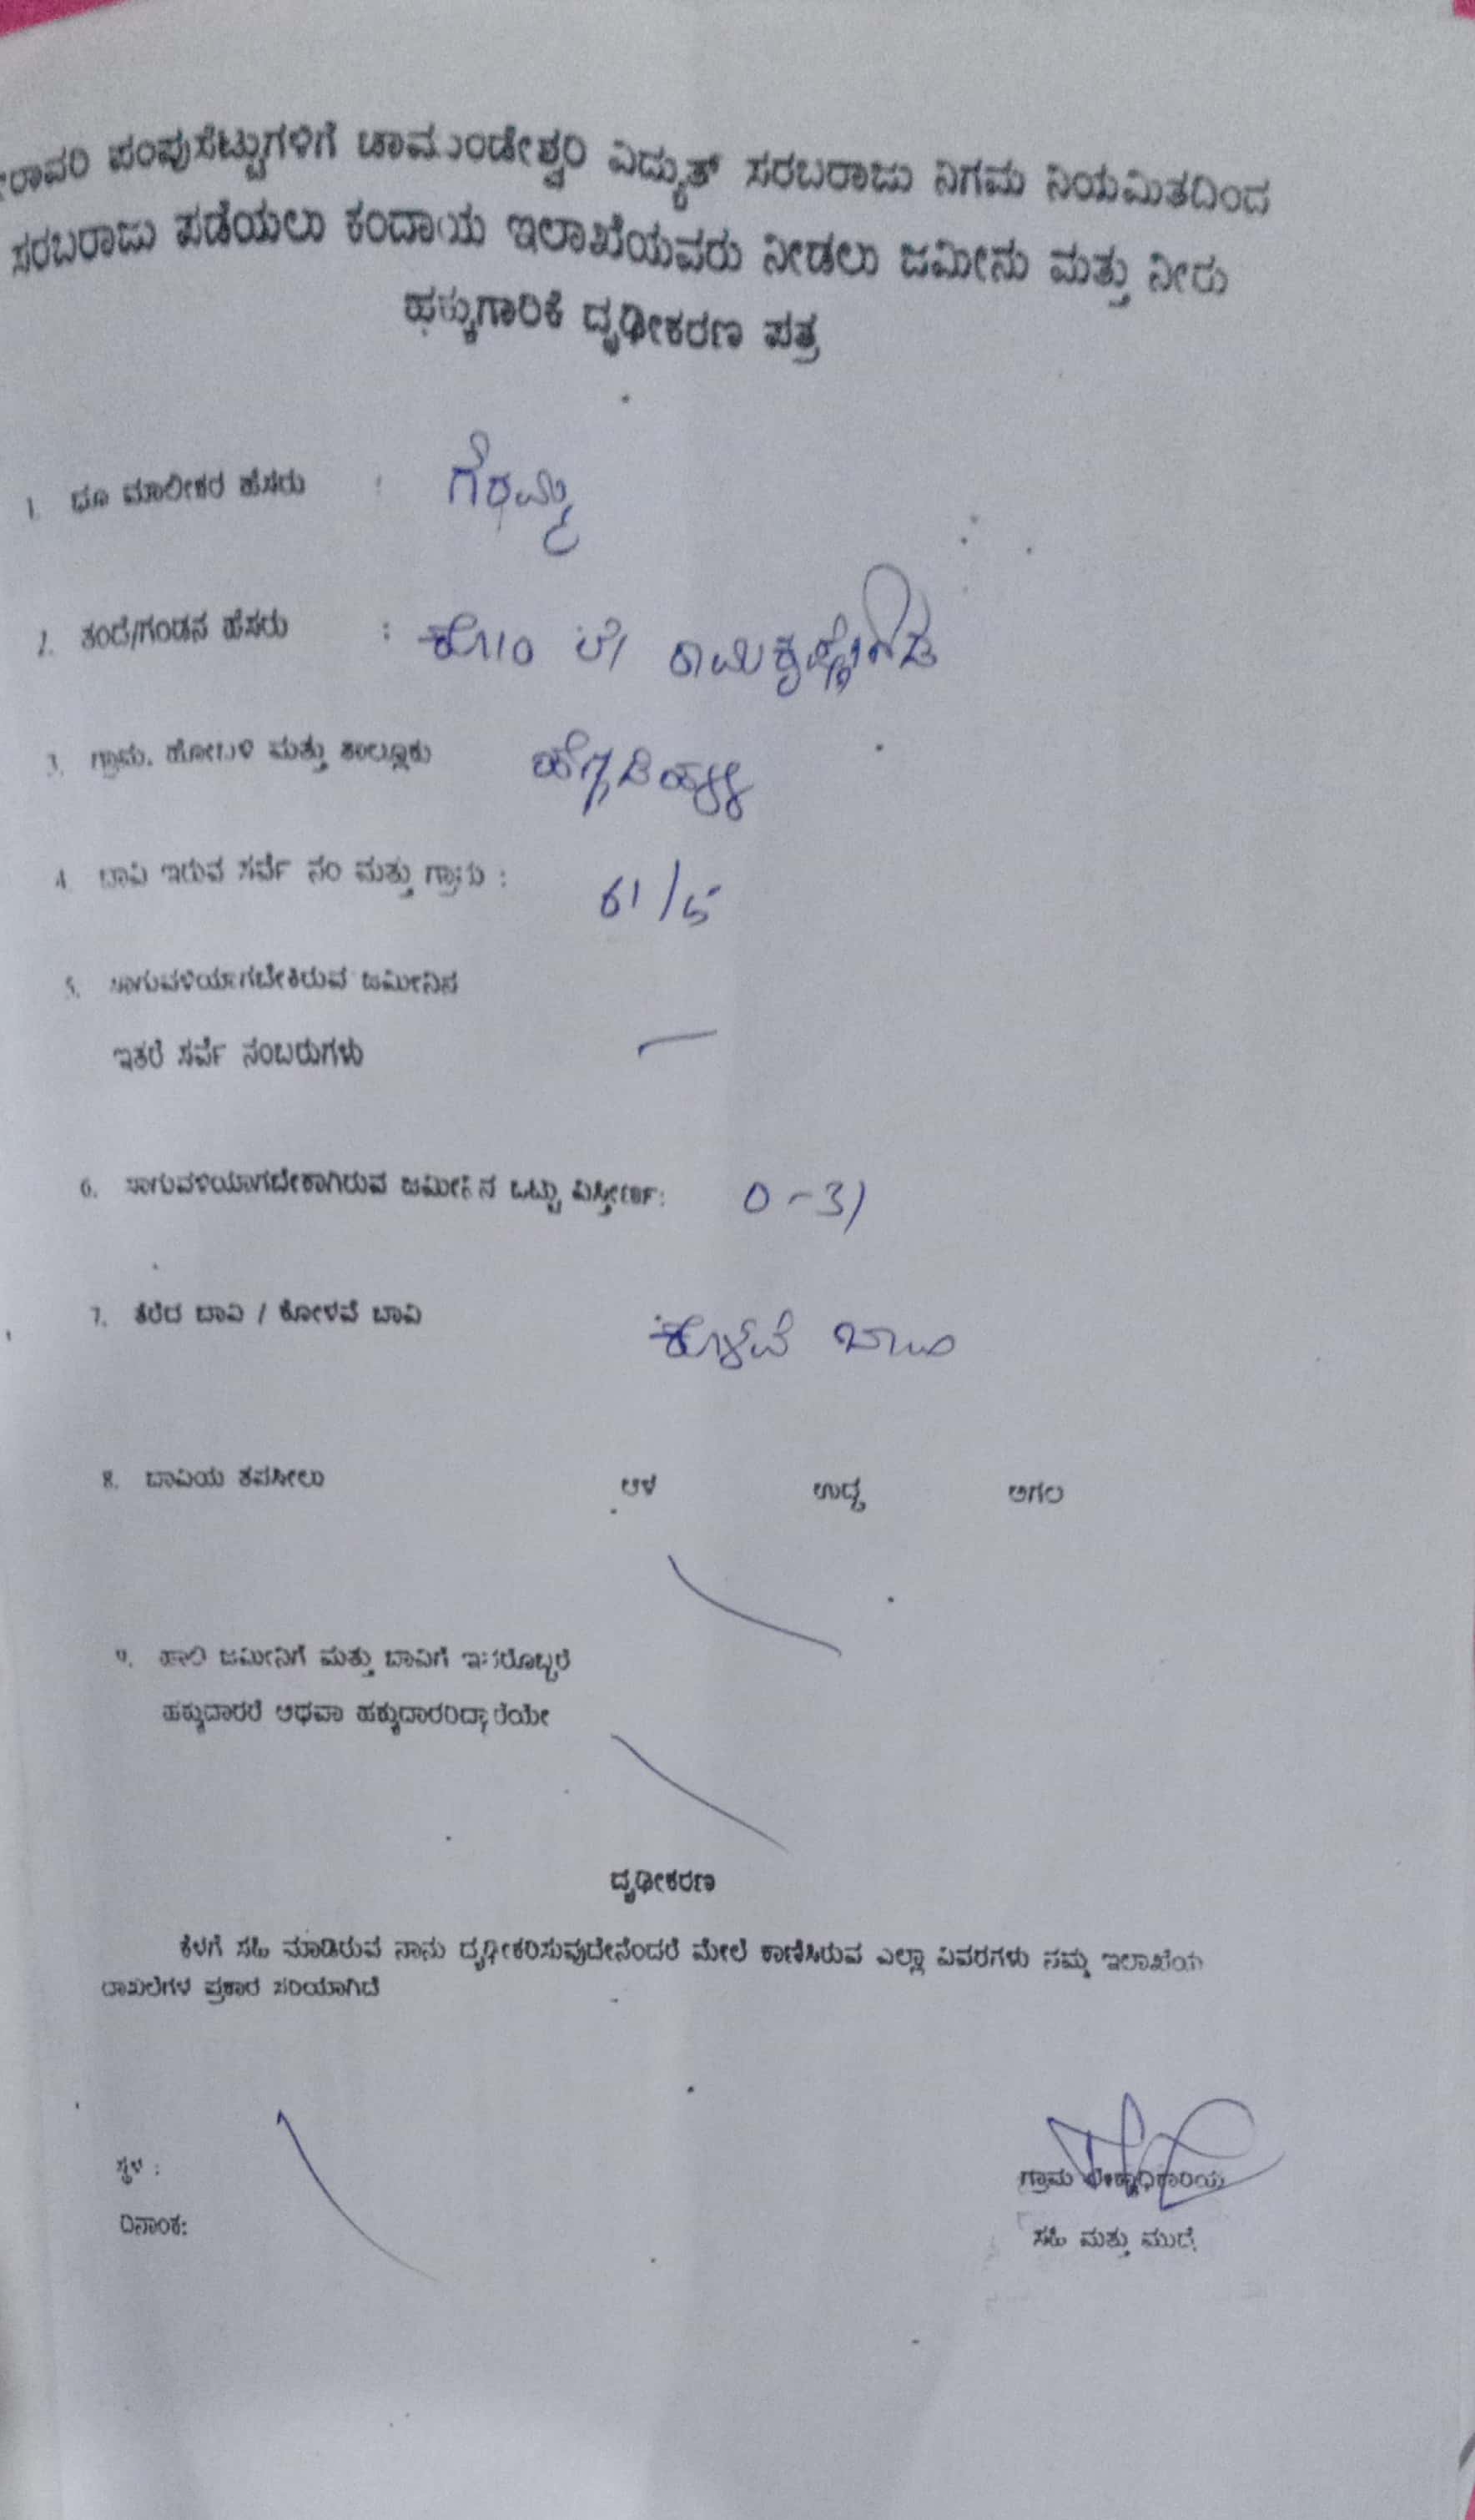 ಪಂಪುಸೆಟ್ಟುಗಳಿಗೆ ಚಾಮುಂಡೇಶ್ವರಿ ವಿದ್ಯುತ್ ಸರಬರಾಜು ನಿಗಮ ನಿಯಮಿತದಿಂದ
ಸರಬರಾಜು ಪಡೆಯಲು ಕಂದಾಯ ಇಲಾಖೆಯವರು ನೀಡಲು ಜಮೀನು ಮತ್ತು ನೀರು
ಹಕ್ಕುಗಾರಿಕೆ ದೃಢೀಕರಣ ಪತ್ರ
1. ಭೂ ಮಾಲೀಕರ ಹೆಸರು :
2. ತಂದೆ/ಗಂಡನ ಹೆಸರು :
3. ಗ್ರಾಮ, ಹೋಬಳಿ ಮತ್ತು ತಾಲ್ಲೂಕು
4. ಬಾವಿ ಇರುವ ಸರ್ವೆ ನಂ ಮತ್ತು ಗ್ರಾಮ : 61/5
5. ಸಾಗುವಳಿಯಾಗಬೇಕಿರುವ ಜಮೀನಿನ
ಇತರೆ ಸರ್ವೆ ನಂಬರುಗಳು —
6. ಸಾಗುವಳಿಯಾಗಬೇಕಾಗಿರುವ ಜಮೀನಿನ ಒಟ್ಟು ವಿಸ್ತೀರ್ಣ: 0-31
7. ತೆರೆದ ಬಾವಿ / ಕೋಳವೆ ಬಾವಿ ಕೊಳವೆ ಬಾವಿ
8. ಬಾವಿಯ ತಪಸೀಲು ಆಳ ಉದ್ದ ಅಗಲ
9. ಹಾಲಿ ಜಮೀನಿಗೆ ಮತ್ತು ಬಾವಿಗೆ ಇತರೊಬ್ಬರೆ
ಹಕ್ಕುದಾರರೆ ಅಥವಾ ಹಕ್ಕುದಾರರಿದ್ದಾರೆಯೇ
ದೃಢೀಕರಣ
ಕೆಳಗೆ ಸಹಿ ಮಾಡಿರುವ ನಾನು ದೃಢೀಕರಿಸುವುದೇನೆಂದರೆ ಮೇಲೆ ಕಾಣಿಸಿರುವ ಎಲ್ಲಾ ವಿವರಗಳು ನಮ್ಮ ಇಲಾಖೆಯ
ದಾಖಲೆಗಳ ಪ್ರಕಾರ ಸರಿಯಾಗಿದೆ
ಸ್ಥಳ :
ಗ್ರಾಮ ಲೆಕ್ಕಾಧಿಕಾರಿಯ
ದಿನಾಂಕ:
ಸಹಿ ಮತ್ತು ಮುದ್ರೆ